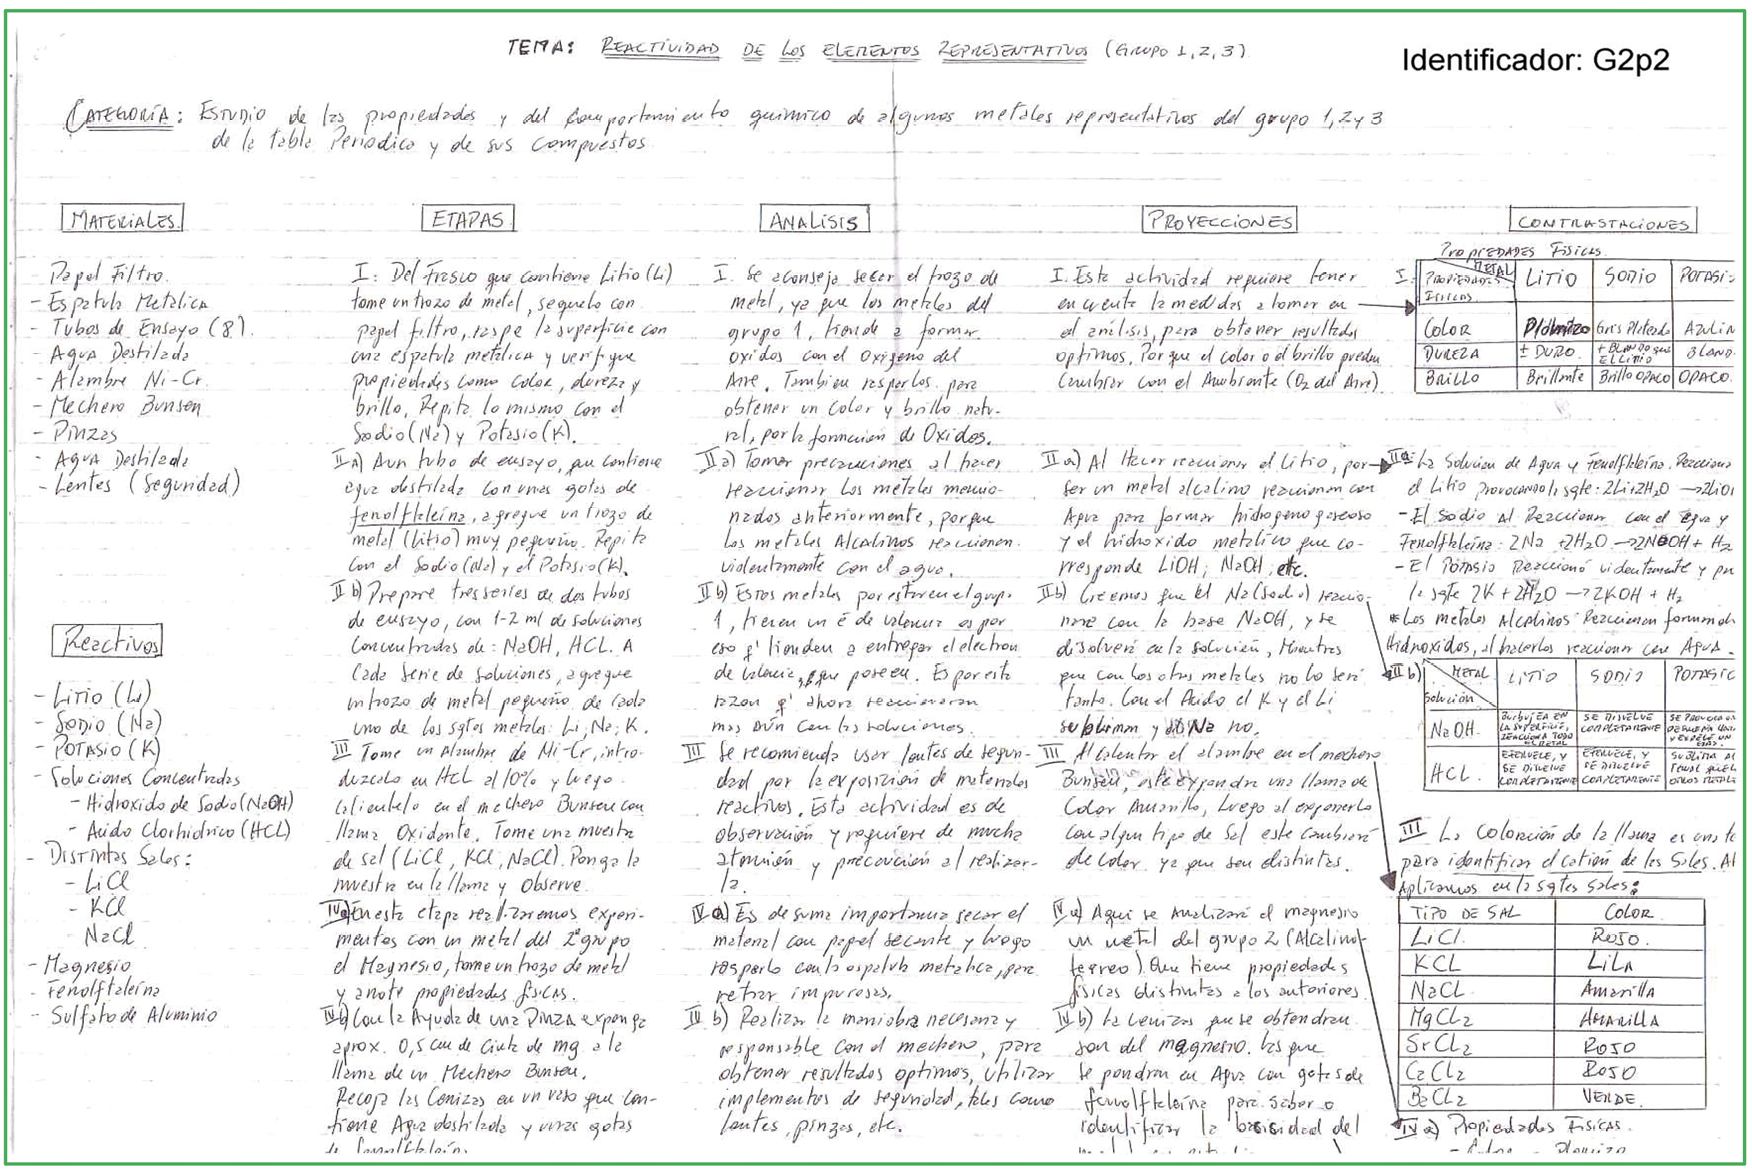 TEMA: REACTIVIDAD DE LOS ELEMENTOS REPRESENTATIVOS (GRUPO 1, 2, 3)
Identificador: G2p2
CATEGORÍA: ESTUDIO de las propiedades y del comportamiento químico de algunos metales representativos del grupo 1, 2 y 3
de la tabla Periodica y de sus compuestos
MATERIALES
Papel Filtro.
- Espatula Metalica
- Tubos de Ensayo (8).
- Agua Destilada
- Alambre Ni-Cr.
- Mechero Bunsen
- Pinzas
- Agua Destilada
- Lentes (Seguridad)
Reactivos
- Litio (Li)
- Sodio (Na)
- POTASIO (K)
- Soluciones Concentradas
- Hidroxido de Sodio (NaOH)
- Acido Clorhidrico (HCL)
- Distintas Sales:
- LiCl
- KCl
NaCl
- Magnesio
- Fenolftaleína
- Sulfato de Aluminio
ETAPAS
I: Del frasco que contiene Litio (Li)
tome un trozo de metal, sequelo con
papel filtro, raspe la superficie con
una espatula metalica y verifique
propiedades como color, dureza y
brillo. Repita lo mismo con el
Sodio (Na) y Potasio (K).
II a) A un tubo de ensayo, que contiene
agua destilada con unas gotas de
fenolftaleína, agregue un trozo de
metal (litio) muy pequeño. Repita
con el Sodio (Na) y el Potasio (K).
II b) Prepare tres series de dos tubos
de ensayo, con 1-2 ml de soluciones
Concentradas de: NaOH, HCL. A
Cada serie de soluciones, agregue
un trozo de metal pequeño de cada
uno de los sgtes metales: Li, Na, K.
III Tome un alambre de Ni-Cr, intro-
duzcalo en HCL al 10% y luego
calientelo en el mechero Bunsen con
llama Oxidante. Tome una muestra
de sal (LiCl, KCl, NaCl). Ponga la
muestra en la llama y Observe.
IV a) En esta etapa realizaremos experi-
mentos con un metal del 2º grupo
el Magnesio, tome un trozo de metal
y anote propiedades físicas.
IV b) Con la Ayuda de una Pinza exponga
aprox. 0,5 cm de Cinta de mg a la
llama de un Mechero Bunsen.
Recoja las Cenizas en un vaso que con-
tiene Agua destilada y unas gotas
de Fenolftaleína.
ANALISIS
I. Se aconseja secar el trozo de
metal, ya que los metales del
grupo 1, tiende a formar
oxidos con el oxigeno del
Aire. Tambien rasparlos para
obtener un color y brillo natu-
ral, por la formacion de Oxidos.
II a) Tomar precauciones al hacer
reaccionar los metales mencio-
nados anteriormente, porque
los metales Alcalinos reaccionan
violentamente con el agua.
II b) Estos metales por estar en el grupo
1, tienen un é de valencia es por
eso q' tienden a entregar el electron
de valencia, que poseen. Es por esta
razon q' ahora reaccionaran
mas aún con las soluciones.
III Se recomienda usar lentes de seguri-
dad por la exposición de materiales
reactivos. Esta actividad es de
observación y requiere de mucha
atención y precaución al realizar-
la.
IV a) Es de suma importancia secar el
material con papel secante y luego
rasparlo con la espatula metalica, para
retirar impurezas.
IV b) Realizar la maniobra necesaria y
responsable con el mechero, para
obtener resultados optimos, utilizar
implementos de seguridad, tales como
lentes, pinzas, etc.
PROYECCIONES
I. Esta actividad requiere tener
en cuenta la medidas a tomar en
el análisis, para obtener resultados
optimos. Porque el color o el brillo pueden
Cambiar con el Ambiente (O2 del Aire).
II a) Al Hacer reaccionar el Litio, por
ser un metal alcalino reaccionan con
Agua para formar hidrogeno gaseoso
y el hidroxido metalico que co-
rresponde LiOH, NaOH, etc.
II b) Creemos que el Na (sodio) reaccio-
nara con la base NaOH, y se
disolverá en la solución, Mientras
que con los otros metales no lo será
tanto. Con el Acido el K y el Li
subliman y el Na no.
III Al calentar el alambre en el mechero
Bunsen, este expondra una llama de
Color Amarillo, Luego al exponerlo
con algun tipo de Sal este cambiará
de color ya que son distintas.
IV a) Aqui se Analizará el magnesio
un metal del grupo 2 (Alcalino-
terreo). Que tiene propiedades
físicas distintas a los anteriores.
IV b) La Cenizas que se obtendran
son del magnesio. las que
se pondran en Agua con gotas de
fenolftaleína para saber o
identificar la basicidad del
CONTRASTACIONES
PROPIEDADES FISICAS
I. METAL PROPIEDADES FISICAS LITIO SODIO POTASI
COLOR Plomizo Gris Plateado AZULIN
DUREZA ± DURO. + BLANDO que EL LITIO BLAND
BRILLO Brillante Brillo OPACO OPACO
II a. La Solucion de Agua y Fenolftaleina. Reacciona
el Litio provocando la sgte: 2Li+2H2O → 2LiO
- El Sodio Al Reaccionar con el agua y
Fenolftaleína: 2Na + 2H2O → 2NaOH + H2
- El Potasio Reaccionó violentamente y pr
la sgte 2K + 2H2O → 2KOH + H2
* Los metales Alcalinos Reaccionan formando
Hidroxidos, al hacerlos reaccionar con Agua.
II b) METAL Solución LITIO SODIO POTASIO
NaOH. BURBUJEA EN LA SUPERFICIE, REACCIONA TODO EL METAL SE DISUELVE COMPLETAMENTE SE PROVOCA UN
HCL. EFERVECE, Y SE DISUELVE COMPLETAMENTE EFERVECE, Y SE DISUELVE COMPLETAMENTE SUBLIMA AL IGUAL QUE LOS OTROS METALES
III La Coloración de la llama es una te
para identificar el cation de las Sales. Al
Aplicamos en la sgtes sales:
TIPO DE SAL COLOR
LiCl. ROJO.
KCL LILA
NaCL Amarilla
MgCL2 AMARILLA
SrCL2 ROJO
CaCL2 ROJO
BaCL2 VERDE.
IV a) Propiedades FISICAS.
- Color - Plomizo